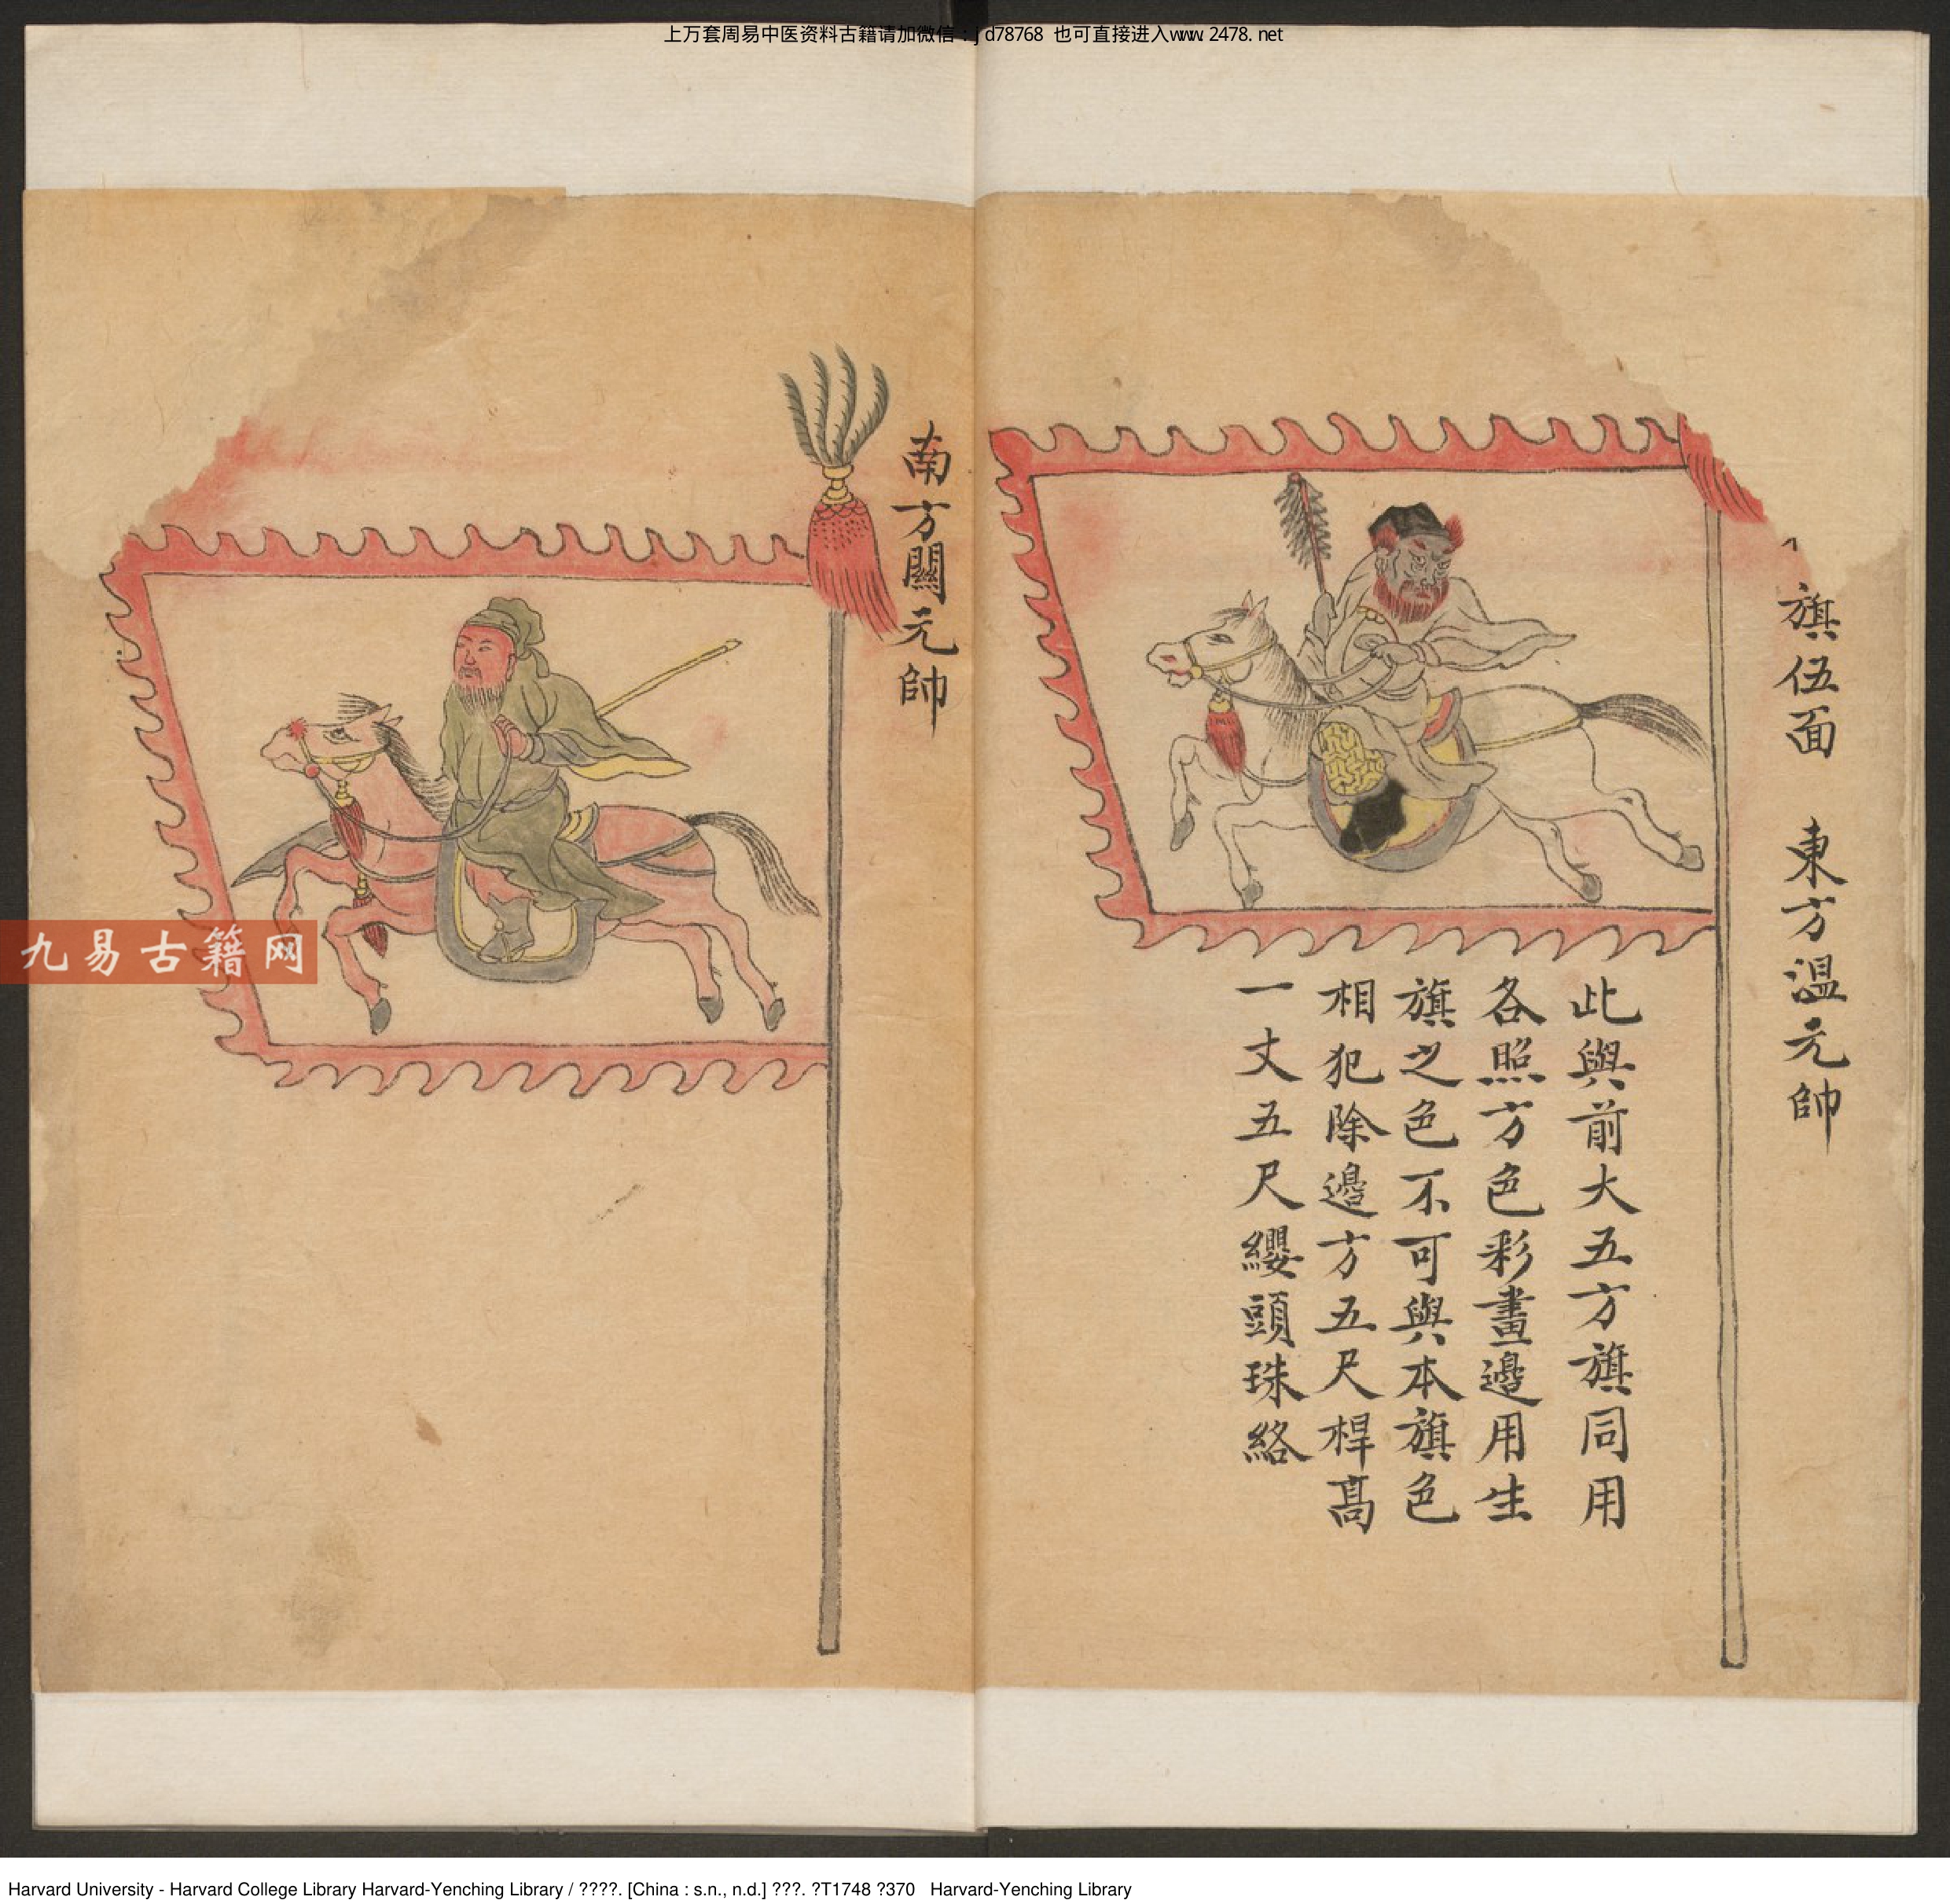 上万套周易中医资料古籍请加微信：jd78768 也可直接进入www.2478.net
旗伍面 東方溫元帥
此與前大五方旗同用
各照方色彩畫邊用生
旗之色不可與本旗色
相犯除邊方五尺桿高
一丈五尺纓頭珠絡
南方關元帥
九易古籍网
Harvard University - Harvard College Library Harvard-Yenching Library / ????. [China : s.n., n.d.] ???. ?T1748 ?370 Harvard-Yenching Library